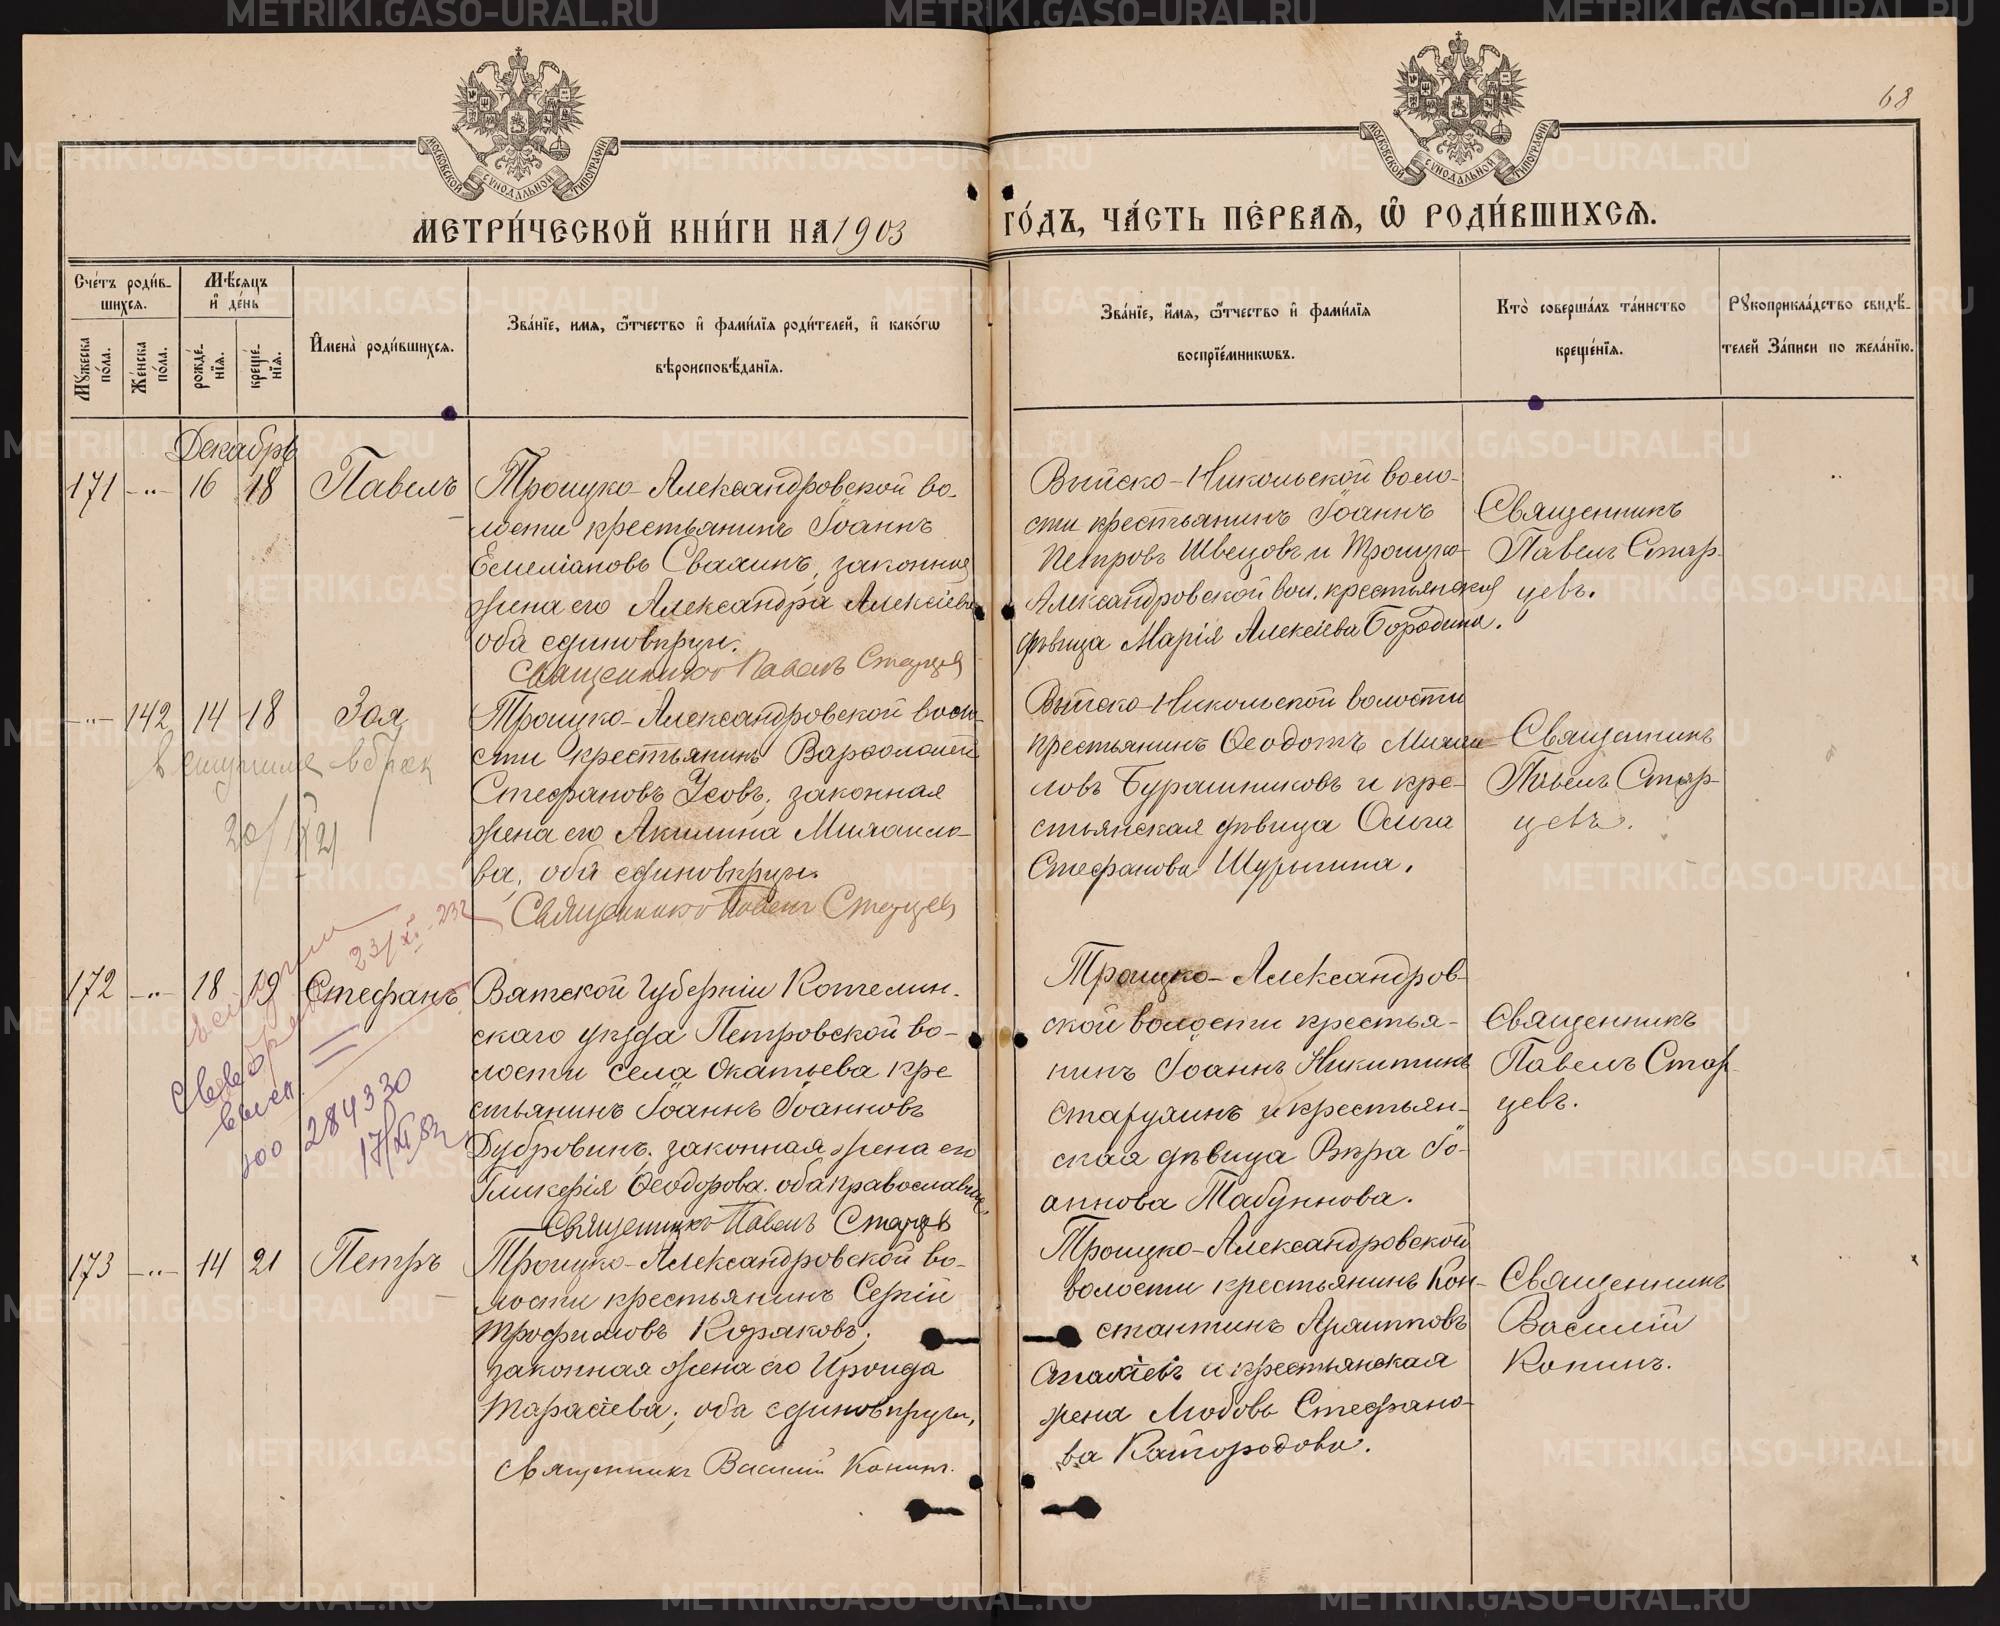 68
МОСКОВСКОЙ СѴНОДАЛЬНОЙ ТИПОГРАФІИ
МОСКОВСКОЙ СѴНОДАЛЬНОЙ ТИПОГРАФІИ
МЕТРИ́ЧЕСКОЙ КНИ́ГИ НА 1903
ГО́ДЪ, ЧА́СТЬ ПЕ́РВАѦ, Ѿ РОДИ́ВШИХСѦ.
Сче́тъ роди́в-
шихсѧ.
Мꙋ́жеска по́ла.
Же́нска по́ла.
Мѣ́сѧцъ
и҆ де́нь
рожде́-
нїѧ.
креще́-
нїѧ.
И҆мена̀ роди́вшихсѧ.
Зва́нїе, имѧ, ѻ҆́тчество и҆ фами́лїѧ роди́телей, и҆ како́гѡ
вѣроисповѣ́данїѧ.
Зва́нїе, и҆́мѧ, ѻ҆́тчество и҆ фами́лїѧ
воспрїе́мникѡвъ.
Кто̀ соверша́лъ та́инство
креще́нїѧ.
Рꙋкоприкла́дство свидѣ́-
телей За́писи по жела́нїю.
Декабрь
171 -„- 16 18 Павелъ
Троицко-Александровской во-
лости крестьянинъ Іоаннъ
Емеліановъ Свалинъ, законная
жена его Александра Алексіева
оба единовѣрцы.
Священникъ Павелъ Старцев
Выйско-Никольской воло-
сти крестьянинъ Іоаннъ
Петровъ Швецовъ и Троицко-
Александровской вол. крестьянская
дѣвица Марія Алексіева Бородина.
Священникъ
Павелъ Стар-
цевъ.
-„- 142 14 18 Зоя
вступила в брак
20/IX 21
Троицко-Александровской воло-
сти крестьянинъ Варѳоломей
Стефановъ Усовъ, законная
жена его Акилина Михаило-
ва, оба единовѣрцы.
Священникъ Павелъ Старцев
Выйско-Никольской волости
крестьянинъ Ѳеодотъ Михаи-
ловъ Бурашниковъ и кре-
стьянская дѣвица Ольга
Стефанова Шурыгина.
Священникъ
Павелъ Стар-
цевъ.
172 -„- 18 19 Стефанъ
23/XI-23г
284330
17/XI 82
Вятской губерніи Котельни-
скаго уѣзда Петровской во-
лости села Окатьева кре
стьянинъ Іоаннъ Іоанновъ
Дубровинъ, законная жена его
Гликерія Ѳеодорова. оба православные.
Священникъ Павелъ Старцев
Троицко-Александров-
ской волости крестья-
нинъ Іоаннъ Никитинъ
и крестьян-
ская дѣвица Вѣра Іо-
аннова Табуннова.
Священникъ
Павелъ Стар-
цевъ.
173 -„- 14 21 Петръ
Троицко-Александровской во-
лости крестьянинъ Сергій
Трофимовъ Коряковъ,
законная жена его Ираида
Тарасіева; оба единовѣрцы,
Священникъ Василій Конинъ.
Троицко-Александровской
волости крестьянинъ Кон-
стантинъ Архипповъ
и крестьянская
жена Любовь Стефано-
ва Кайгородова.
Священникъ
Василій
Конинъ.
METRIKI.GASO-URAL.RU